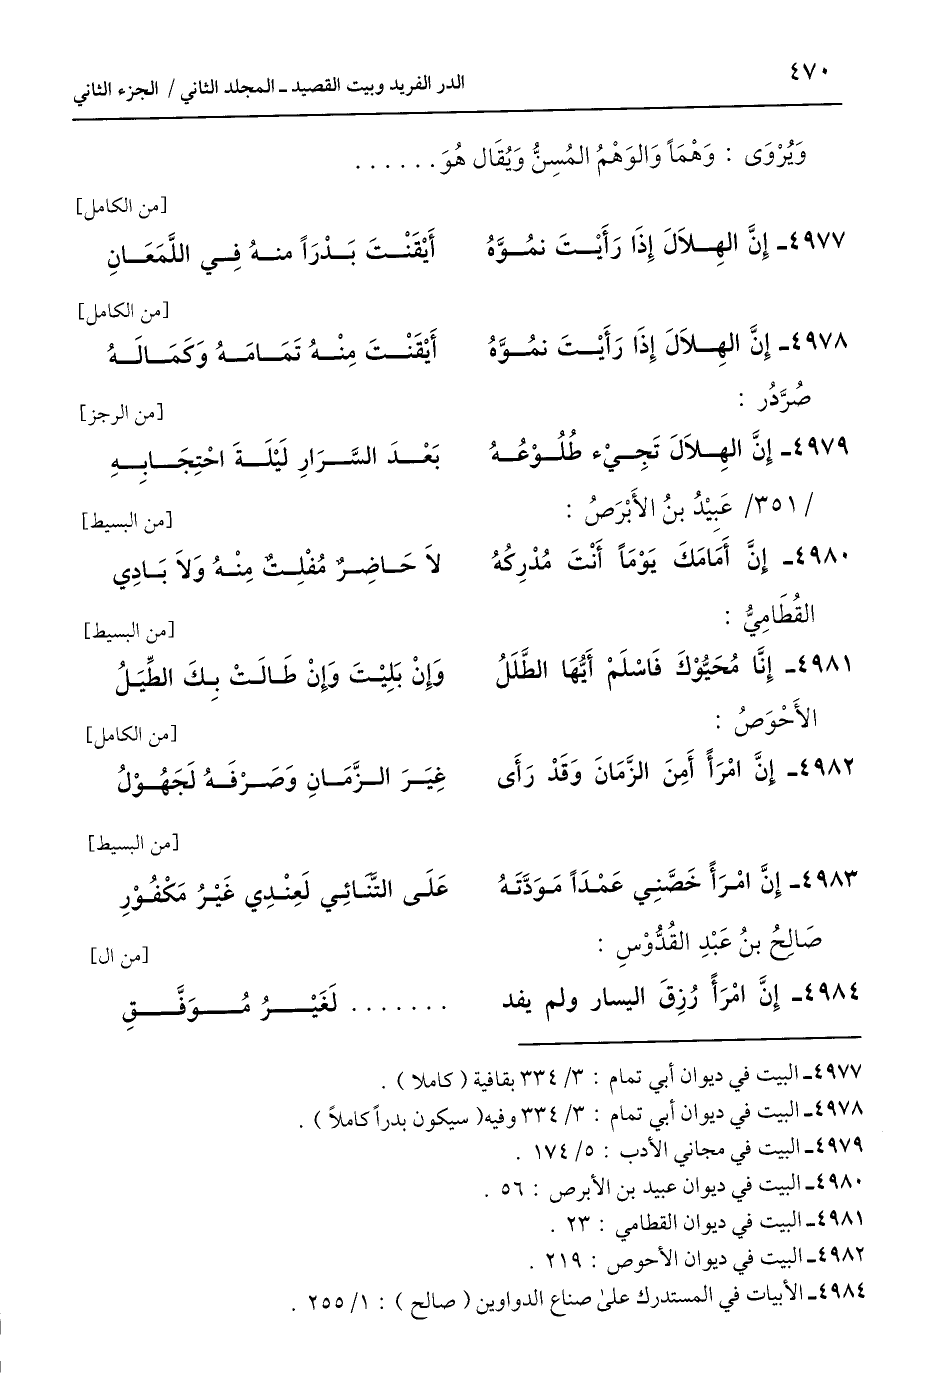 ٤٧٠
الدر الفريد وبيت القصيد ـ المجلد الثاني / الجزء الثاني
وَيُرْوَى : وَهْمَاً وَالوَهْمُ المُسِنُّ وَيُقَال هُوَ . . . . . .
[من الكامل]
٤٩٧٧ـ إِنَّ الهِلاَلَ إِذَا رَأَيْتَ نمُوَّهُ أَيْقَنْتَ بَدْرَاً منهُ فِي اللَّمَعَانِ
[من الكامل]
٤٩٧٨ـ إِنَّ الهِلاَلَ إِذَا رَأَيْتَ نمُوَّهُ أَيْقَنْتَ مِنْهُ تَمَامَهُ وَكَمَالَهُ
صُرَّدُر :
[من الرجز]
٤٩٧٩ـ إِنَّ الهِلاَلَ تَجِيْء طُلُوْعُهُ بَعْدَ السَّرَارِ لَيْلَةَ احْتِجَابِهِ
/ ٣٥١/ عَبِيْدُ بنُ الأَبْرَصُ :
[من البسيط]
٤٩٨٠ـ إِنَّ أَمَامَكَ يَوْمَاً أَنْتَ مُدْرِكُهُ لاَ حَاضِرٌ مُفْلِتٌ مِنْهُ وَلاَ بَادِي
القُطَامِيُّ :
[من البسيط]
٤٩٨١ـ إِنَّا مُحَيُّوْكَ فَاسْلَمْ أَيُّهَا الطَّلَلُ وَإِنْ بَلِيْتَ وَإِنْ طَالَتْ بِكَ الطِّيَلُ
الأَحْوَصُ :
[من الكامل]
٤٩٨٢ـ إِنَّ امْرَأً أَمِنَ الزَّمَانَ وَقَدْ رَأَى غِيَرَ الزَّمَانِ وَصَرْفَهُ لَجَهُوْلُ
[من البسيط]
٤٩٨٣ـ إِنَّ امْرَأً خَصَّنِي عَمْدَاً مَوَدَّتَهُ عَلَى التَّنَائِي لَعِنْدِي غَيْرُ مَكْفُوْرِ
صَالِحُ بنُ عَبْدِ القُدُّوْسِ :
[من ال]
٤٩٨٤ـ إِنَّ امْرَأً رُزِقَ اليسار ولم يفد . . . . . . . لَغَيْرُ مُوَفَّقِ
٤٩٧٧ـ البيت في ديوان أبي تمام : ٣/ ٣٣٤ بقافية ( كاملا ) .
٤٩٧٨ـ البيت في ديوان أبي تمام : ٣/ ٣٣٤ وفيه( سيكون بدراً كاملاً ) .
٤٩٧٩ـ البيت في مجاني الأدب : ٥/ ١٧٤ .
٤٩٨٠ـ البيت في ديوان عبيد بن الأبرص : ٥٦ .
٤٩٨١ـ البيت في ديوان القطامي : ٢٣ .
٤٩٨٢ـ البيت في ديوان الأحوص : ٢١٩ .
٤٩٨٤ـ الأبيات في المستدرك على صناع الدواوين ( صالح ) : ١/ ٢٥٥ .